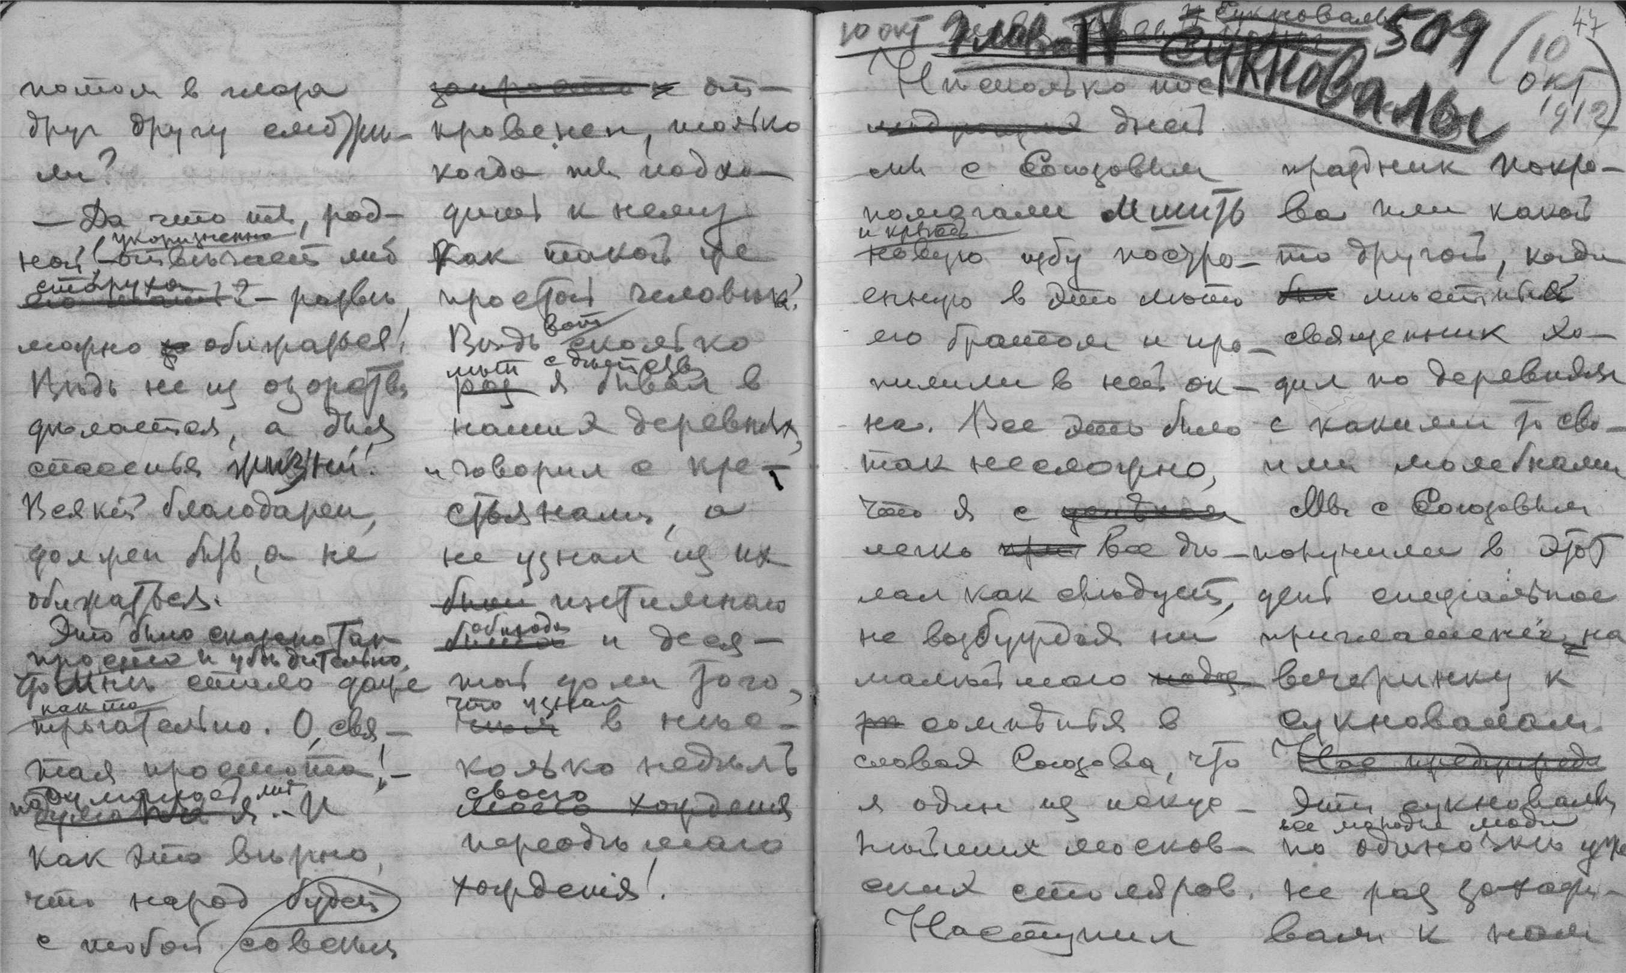 потом в глаза
друг другу смотри-
ли?
— Да что ты, род-
ной! укоризненно
отвѣчает мнѣ
старуха — развѣ
можно обижаться!
Вѣдь не из озорства
дѣлается, а для
спасенья жизни!
Всякiй благодарен
должен быть, а не
обижаться.
Это было сказано так
просто и убѣдительно,
что мнѣ стало даже
как то
трогательно. О, свя-
тая простота!—
подумалось мнѣ .. И
как это вѣрно,
что народ будет
с тобой совсѣм
от-
кровенен, только
когда ты подхо-
дишь к нему
как такой же
простой человѣк.
Вѣдь вот сколько
лѣт с дѣтства
я бывал в
наших деревнях,
и говорил с кре-
стьянами, а
не узнал из их
обихода и деся-
той доли того,
что узнал
в нѣс-
колько недѣль
своего
переодѣтаго
хожденiя!
10 окт Глав. IV Сукновалы 509 (10 окт 1912) 47
Нѣсколько
дней
мы с Союзовым
помогали мшить
и крыть
новую избу постро-
енную в это лѣто
его братом и про-
пилили в ней ок-
на. Все это было
так несложно,
что я с
легко все дѣ-
лал как слѣдует,
не возбуждая ни
малѣйшаго
сомнѣнiя в
словах Союзова, что
я один из искус-
нѣйших москов-
ских столяров.
Наступил
праздник Покро-
ва или какой
то другой, когда
мѣстный
священник хо-
дил по деревням
с какими то сво-
ими молебнами
Мы с Союзовым
получили в этот
день спецiальное
приглашенiе на
вечеринку к
сукновалам
Эти сукновалы,
все молодые люди
по одиночкѣ уже
не раз захажи-
вали к нам